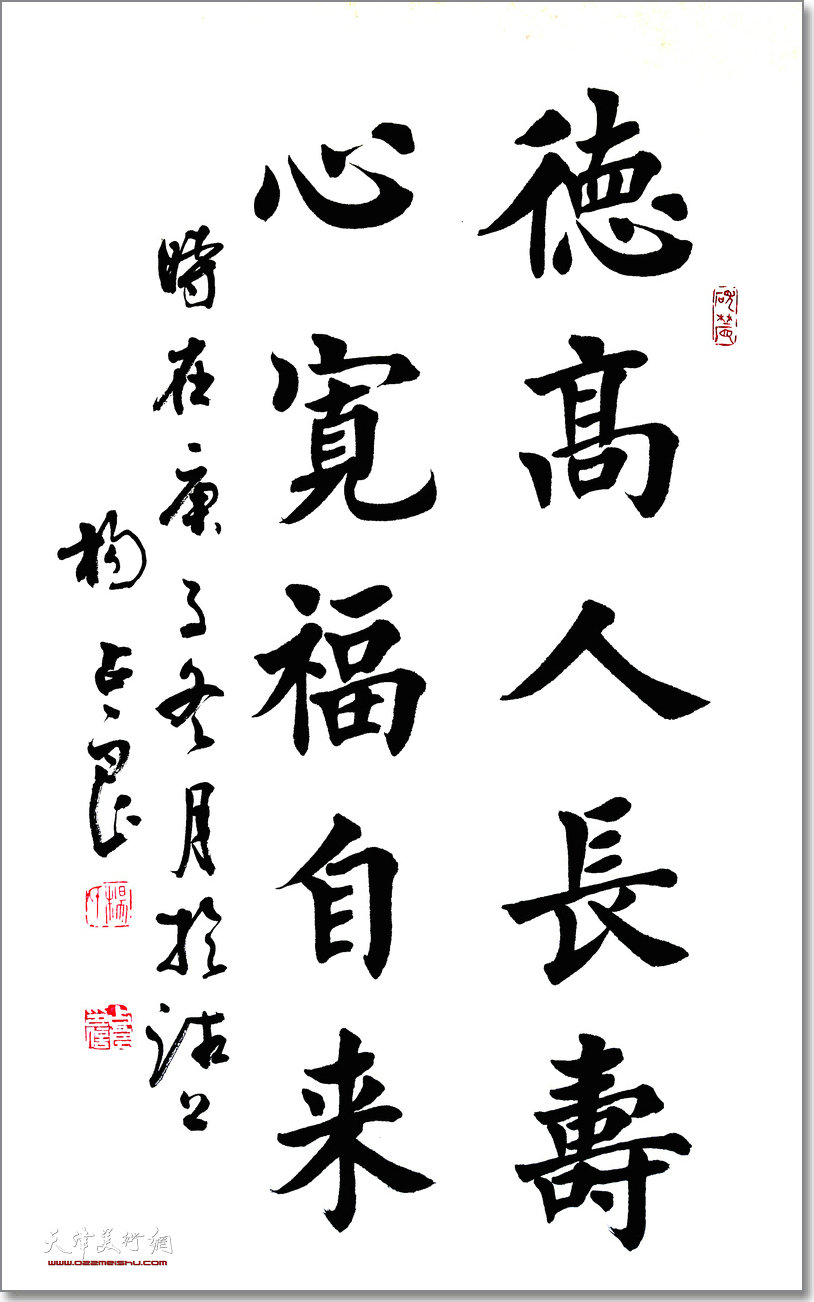 德高人長壽
心寬福自来
時在庚子冬月於沽上
楊占良
天津美術網
www.022meishu.com